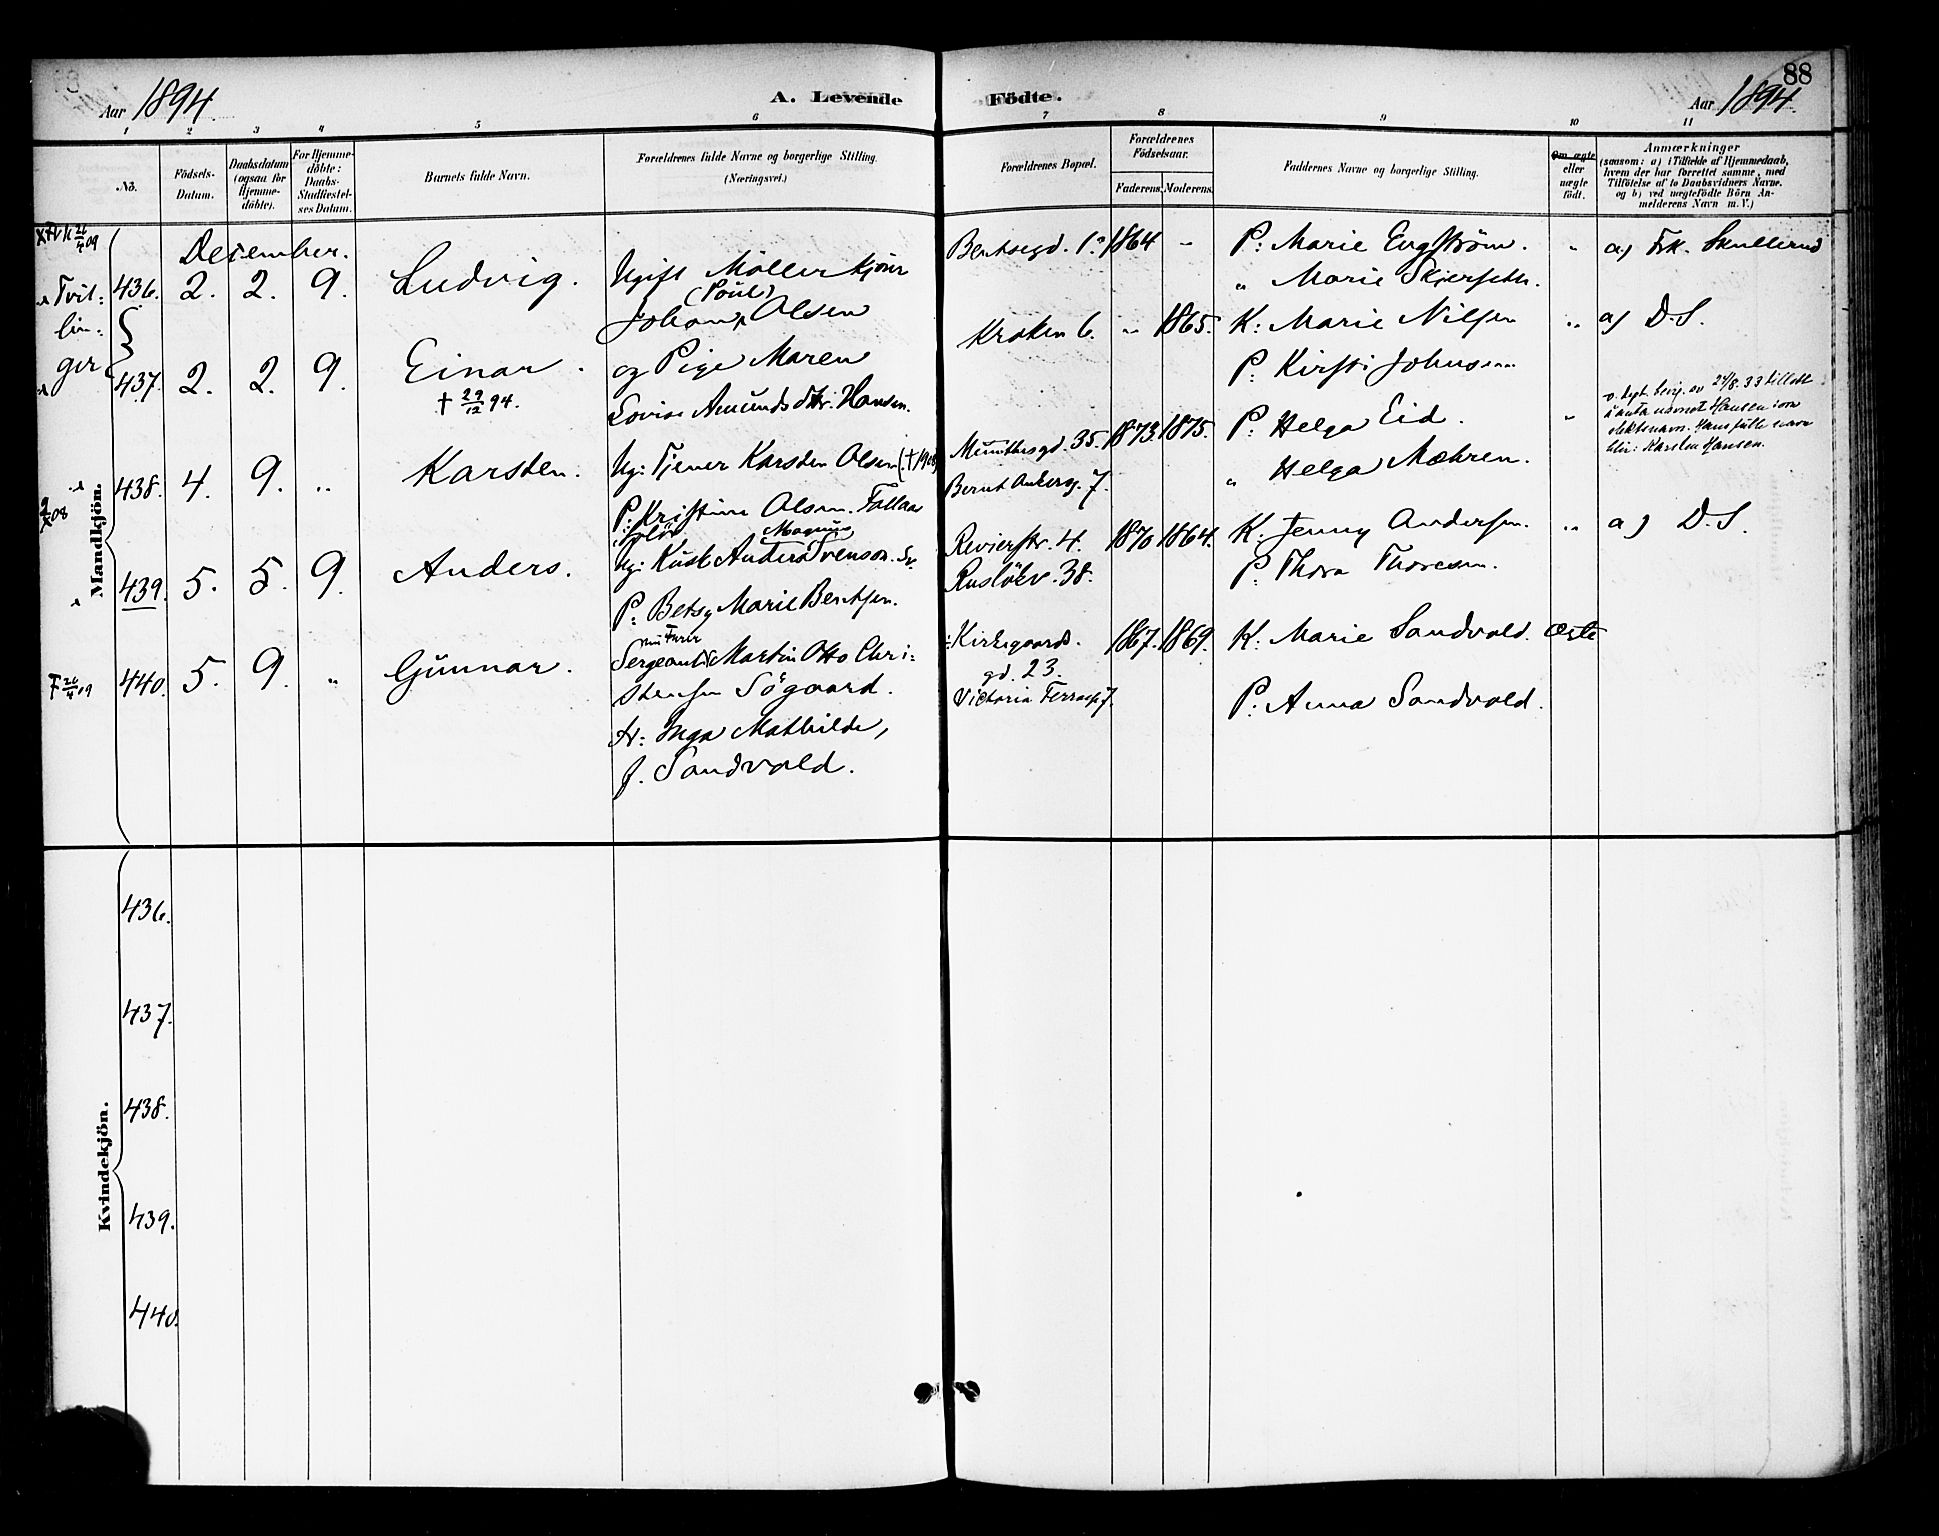 88
Aar 1894. A. Levende Födte. Aar 1894.
1 2 3 4 5 6 7 8 9 10 11
No.
Födsels-Datum.
Daabsdatum (ogsaa for Hjemme-döbte).
For Hjemme-döbte: Daabs-Stadfæstel-ses Datum.
Barnets fulde Navn.
Forældrenes fulde Navne og borgerlige Stilling. (Næringsvei.)
Forældrenes Bopæl.
Forældrenes Födselsaar.
Faderens. Moderens.
Faddernes Navne og borgerlige Stilling.
Om ægte eller uægte födt.
Anmærkninger
(saasom: a) i Tilfælde af Hjemmedaab,
hvem der har forrettet samme, med
Tilföielse af to Daabsvidners Navne.
og b) ved uegtefödte Börn An-
melderens Navn m. V.)
Mandkjön.
December.
Tvil: lin: ger
436. 2. 2. 9. Ludvig.
Ugift Möller kjörer
(Poul)
Johan Olsen
Bentsegd. 1 1864 -
P: Marie Engström.
" Marie Skjerseth.
" a) Frk. Skullerud
437. 2. 2. 9. Einar.
† 29/12 94.
og Pige Maren
Lovise Amundsdtr. Hansen.
Kroken 6. " 1865.
K: Marie Nilsen
P: Kirsti Johnsen
" a) D.S.
438. 4. 9. " Karsten.
Ug: Tjener Karsten Olsen († 1908)
P: Kristine Olsen.
Munthesgd. 35. 1873. 1875.
Bernt Ankersg. 7.
P: Helga Eid.
" Helga Mæhren.
"
av 24/8.33 tillatt
å anta navnet Hansen som
slektsnavn. Hans fulle navn
blir: Karsten Hansen.
439. 5. 5. 9. Anders.
Magnus
Ug: Kusk Anders Svenson. Sv.
P: Betsy Marie Bentsen.
Revierstr. 4. 1870 1864.
Ruslökv. 38.
K: Jenny Andersen.
P: Thora Thoresen.
" a) D.S.
440. 5. 9. " Gunnar.
Sergeant Martin Otto Chri:
stensen Sögaard.
H: Inga Mathilde,
f. Sandvold.
Kirkegaards.
gd. 23.
Victoria Terrasse 7.
1867. 1869.
K: Marie Sandvold. Ægte
P: Anna Sandvold.
Kvindekjön.
436.
437.
438.
439.
440.